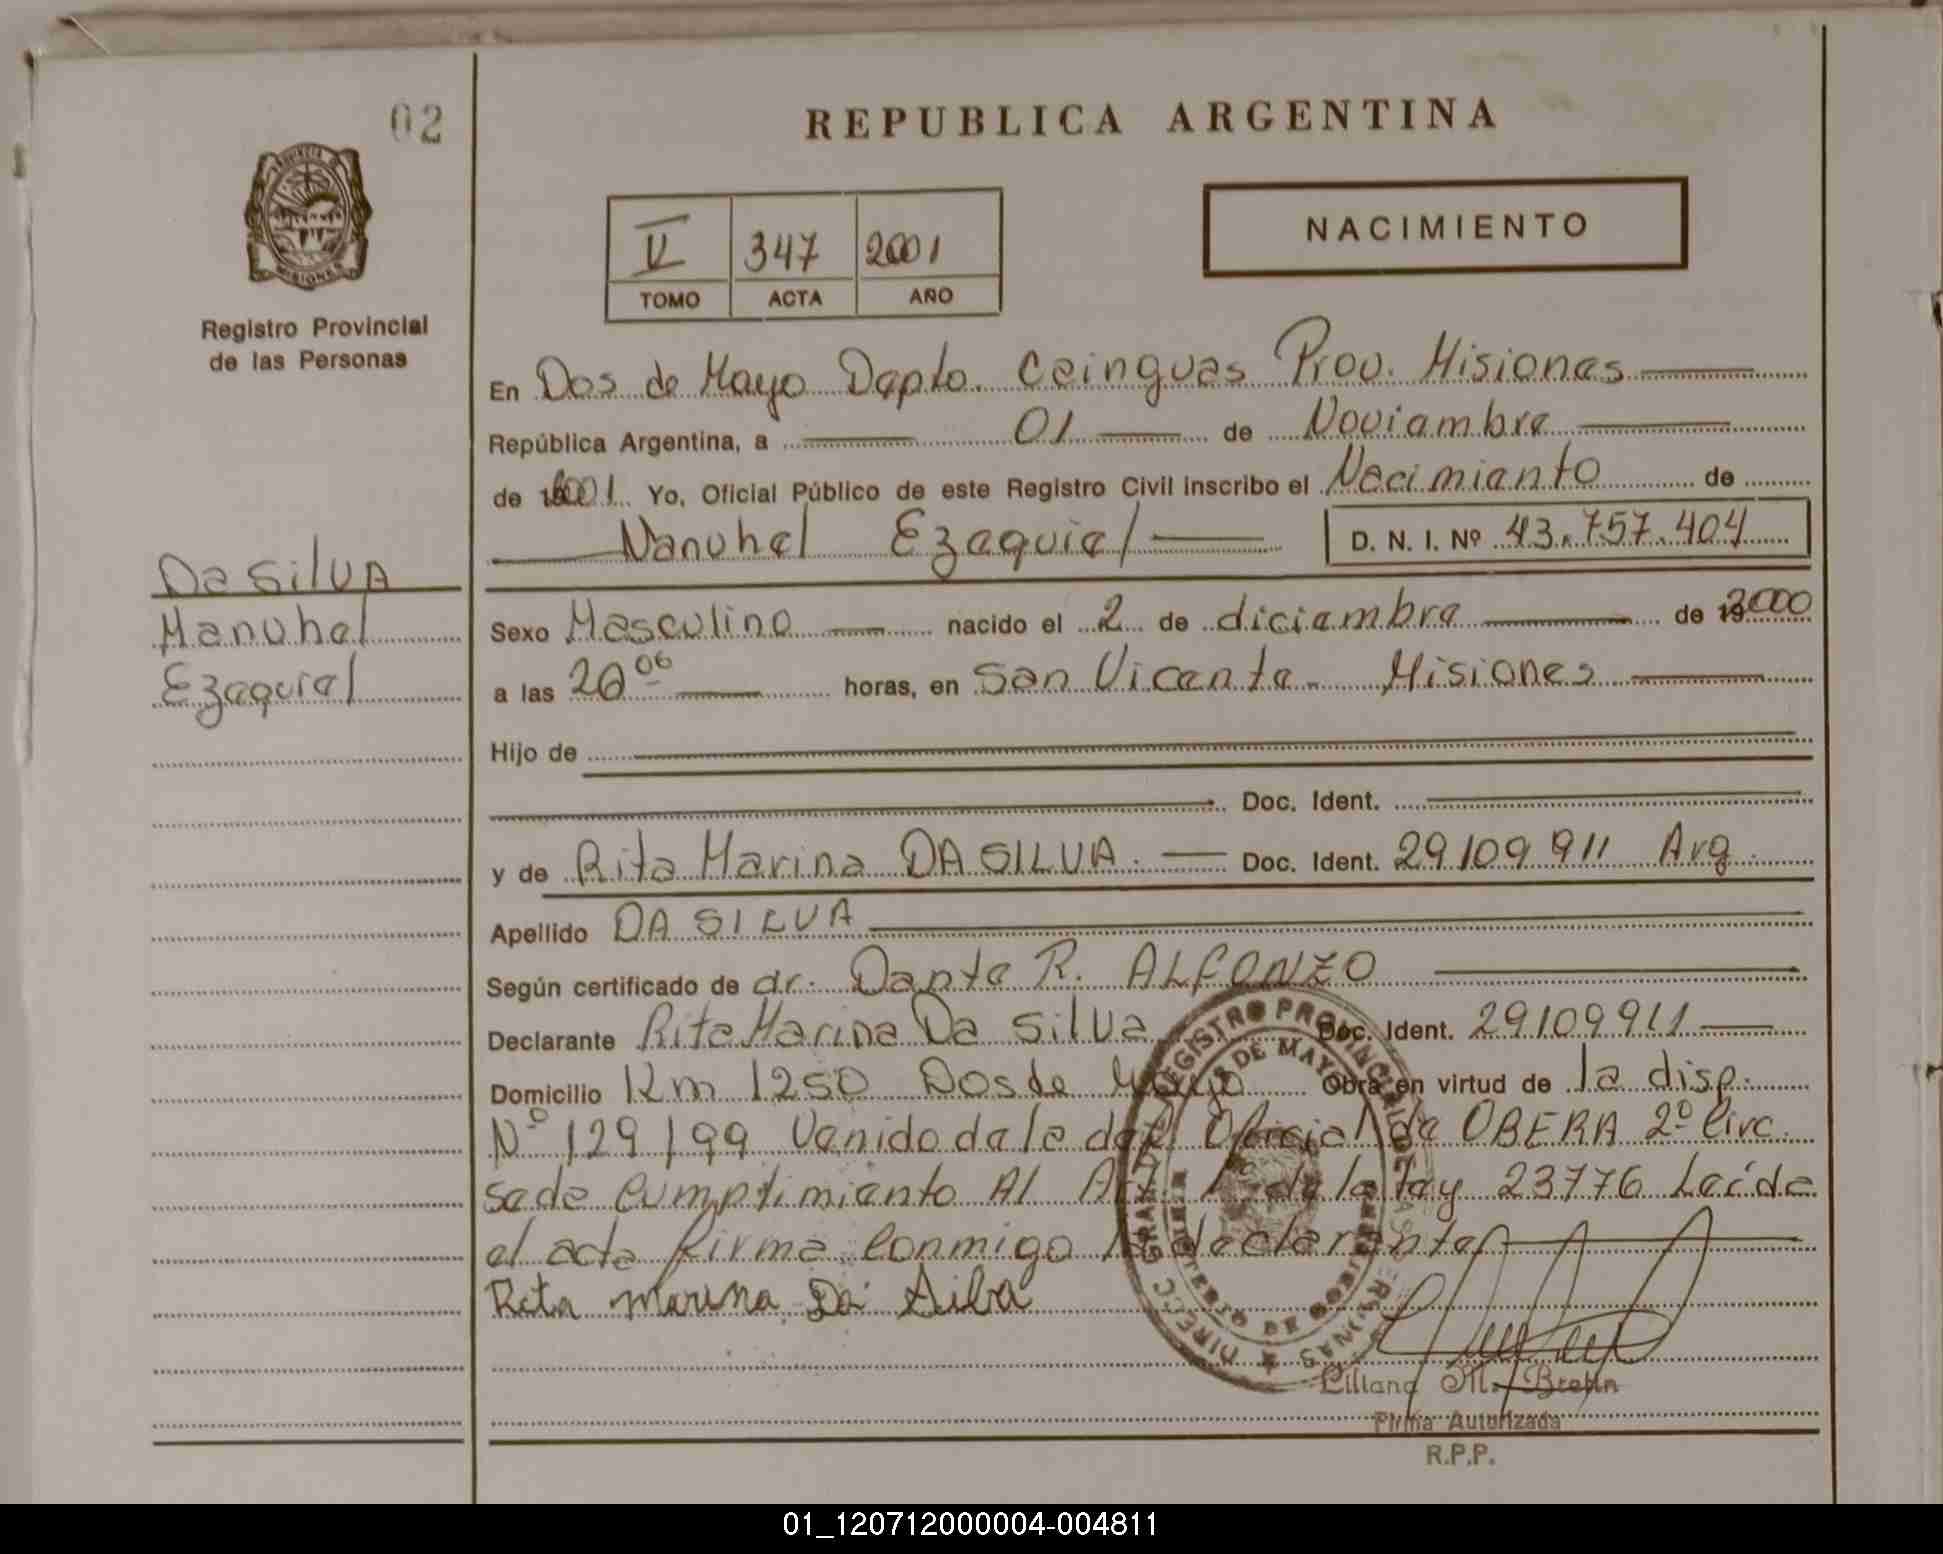 02
REPUBLICA ARGENTINA
PROVINCIA DE
MISIONES
Registro Provincial
de las Personas
II 347 2001
TOMO ACTA AÑO
NACIMIENTO
En Dos de Mayo Depto. Cainguas Prov. Misiones
República Argentina, a 01 de Noviembre
de 2001 Yo, Oficial Público de este Registro Civil inscribo el Nacimiento de
Manuhel Ezequiel D. N. I. Nº 43.757.404
Da SilVA
Manuhel
Ezequiel
Sexo Masculino nacido el 2 de diciembre de 2000
a las 20 06 horas, en San Vicente - Misiones
Hijo de
Doc. Ident.
y de Rita Marina DA SILVA. Doc. Ident. 29109911 Arg.
Apellido DA SILVA
Según certificado de dr. Dante R. ALFONZO
Declarante Rita Marina Da Silva Doc. Ident. 29109911
Domicilio Km 1250 Dos de Mayo Obra en virtud de la disp.
Nº 129/99 Venido de la del. Oficial de OBERA 2º Circ.
se de cumplimiento Al Art. de la ley 23776 Leída
el acta firma conmigo la declarante
Rita Marina Da Silva
DIRECC. GRAL. DEL REGISTRO PROVINCIAL DE LAS PERSONAS
2 DE MAYO
MINISTERIO DE GOBIERNO
Liliana M.
Firma Autorizada
R.P.P.
01_120712000004-004811